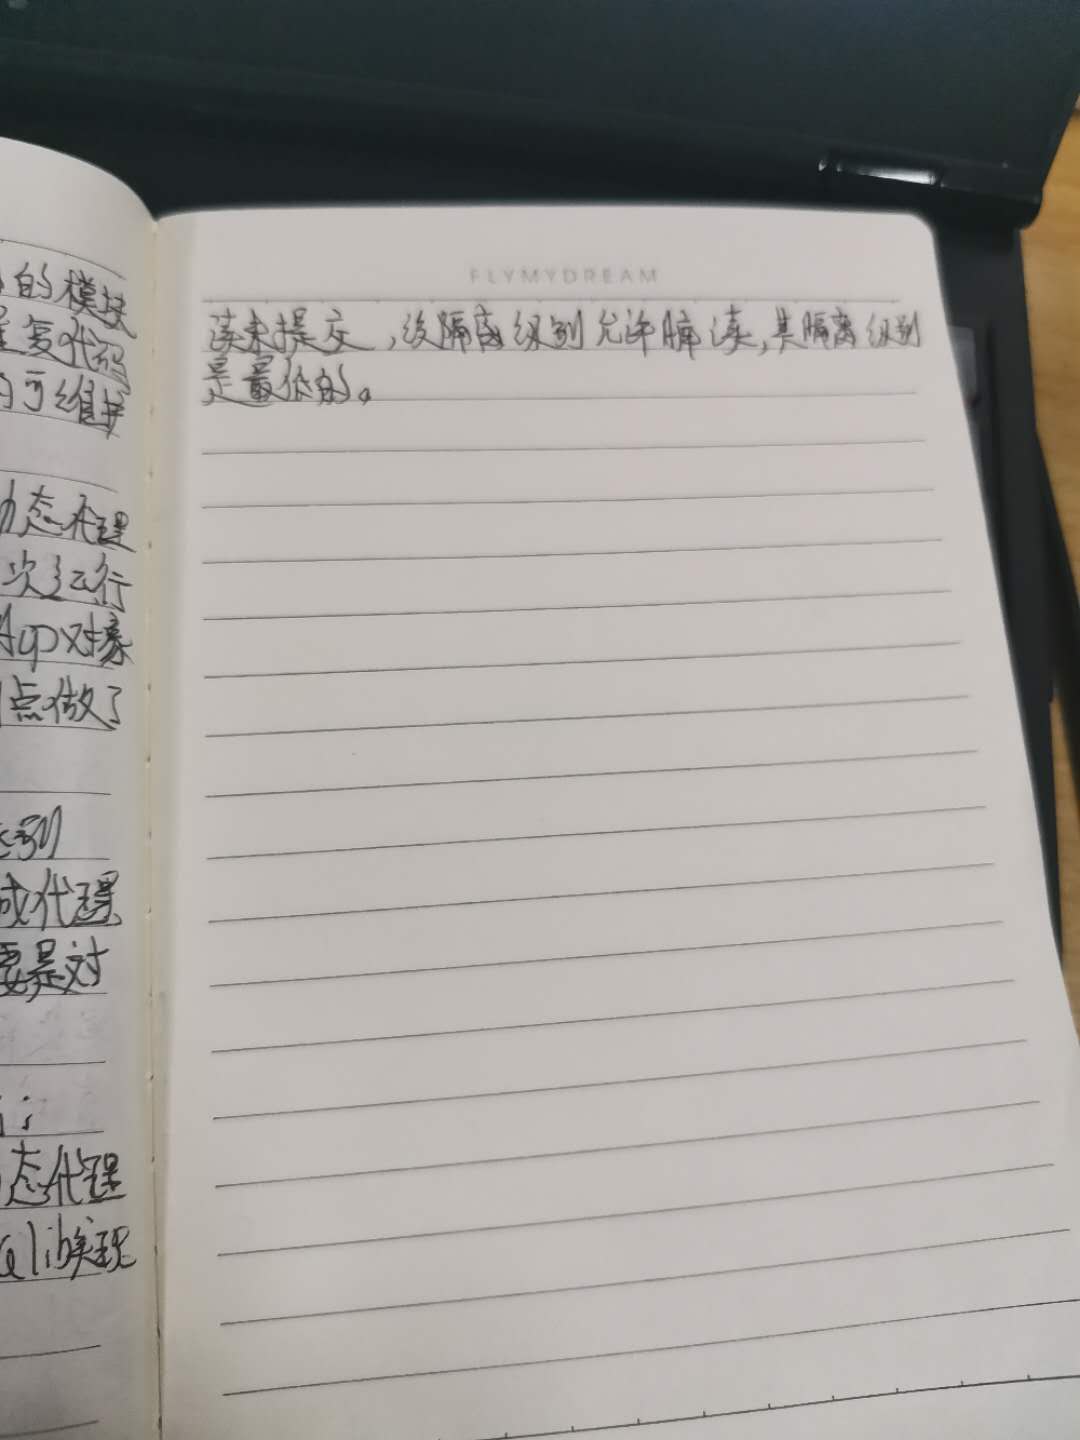 的模块
复代码
可维护
态代理
次运行
Aop对象
点做了
级别
成代理
要是对
态代理
glib实现
FLYMYDREAM
读未提交,该隔离级别允许脏读,其隔离级别
是最低的。